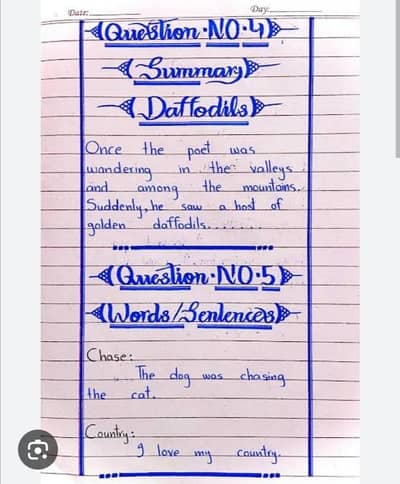 Date:
Day:
Question NO:4
Summary
Daffodils
Once the poet was
wandering in the valleys
and among the mountains.
Suddenly, he saw a host of
golden daffodils.......
Question NO:5
Words/Sentences
Chase:
The dog was chasing
the cat.
Country:
I love my country.